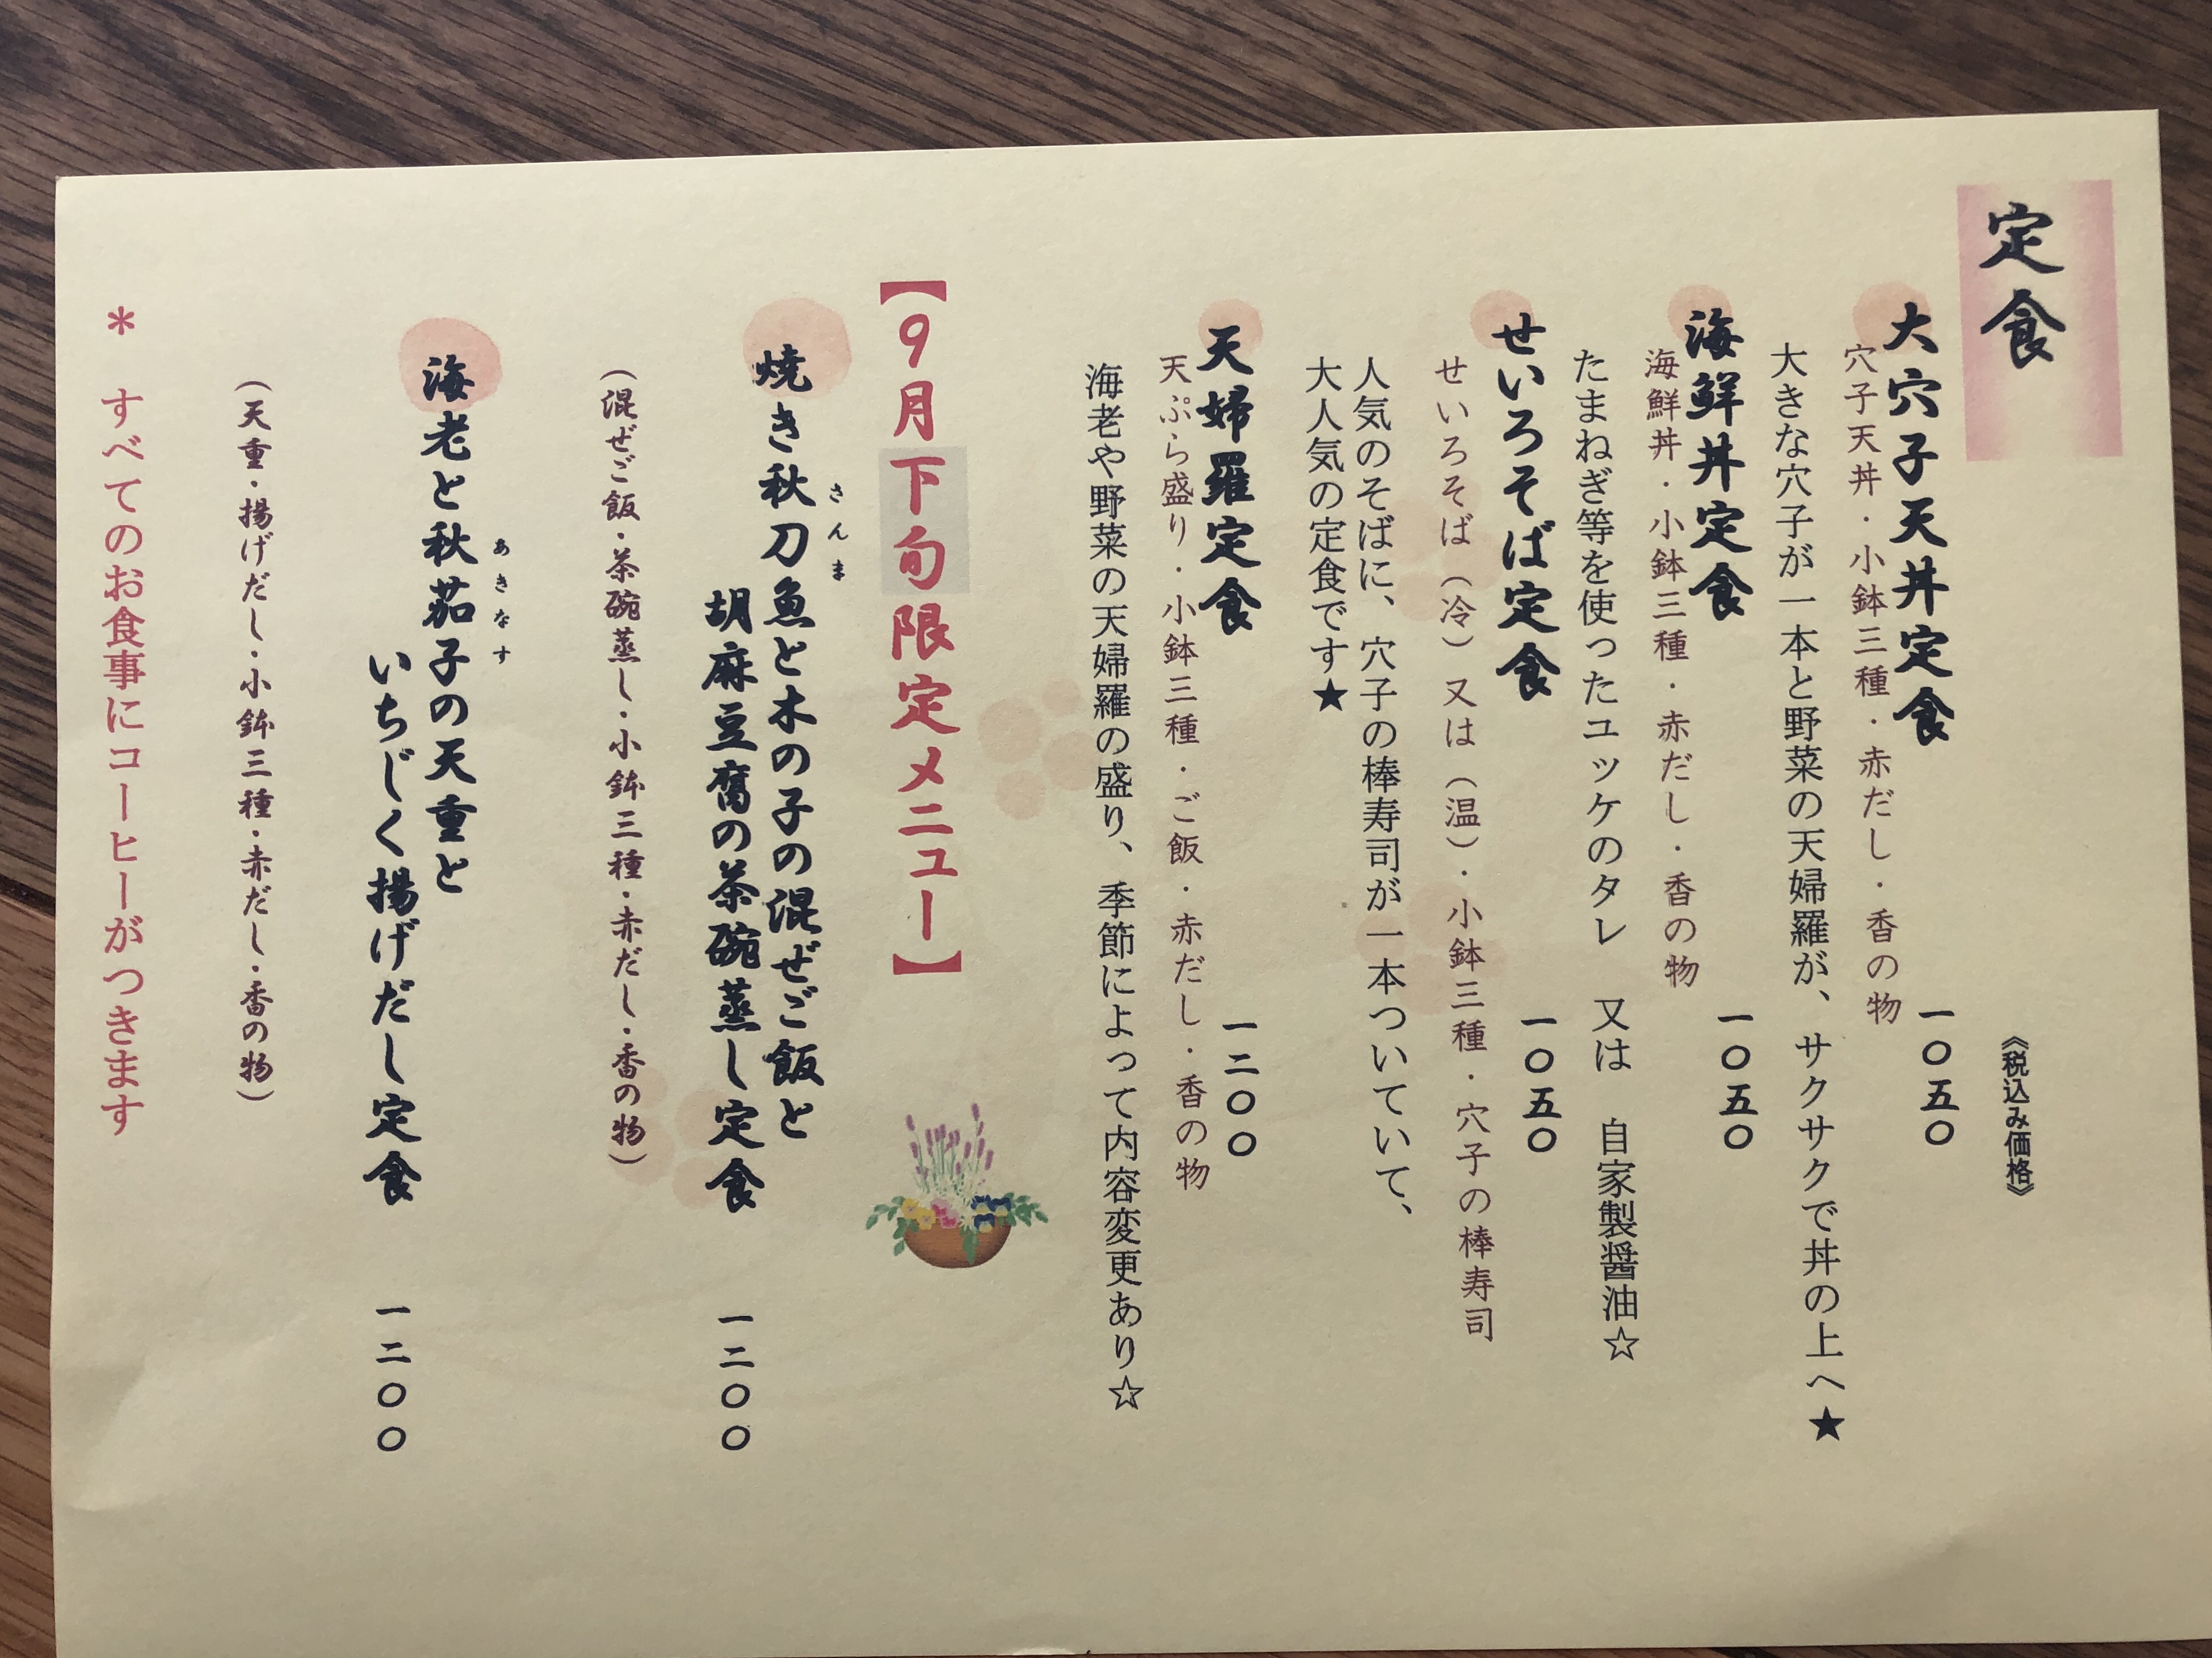 定食
《税込み価格》
大穴子天丼定食　一〇五〇
穴子天丼・小鉢三種・赤だし・香の物
大きな穴子が一本と野菜の天婦羅が、サクサクで丼の上へ★
海鮮丼定食　一〇五〇
海鮮丼・小鉢三種・赤だし・香の物
たまねぎ等を使ったユッケのタレ　又は　自家製醤油☆
せいろそば定食　一〇五〇
せいろそば（冷）又は（温）・小鉢三種・穴子の棒寿司
人気のそばに、穴子の棒寿司が一本ついていて、
大人気の定食です★
天婦羅定食　一二〇〇
天ぷら盛り・小鉢三種・ご飯・赤だし・香の物
海老や野菜の天婦羅の盛り、季節によって内容変更あり☆
【9月下旬限定メニュー】
さんま
焼き秋刀魚と木の子の混ぜご飯と
胡麻豆腐の茶碗蒸し定食　一二〇〇
（混ぜご飯・茶碗蒸し・小鉢三種・赤だし・香の物）
あきなす
海老と秋茄子の天重と
いちじく揚げだし定食　一二〇〇
（天重・揚げだし・小鉢三種・赤だし・香の物）
＊　すべてのお食事にコーヒーがつきます